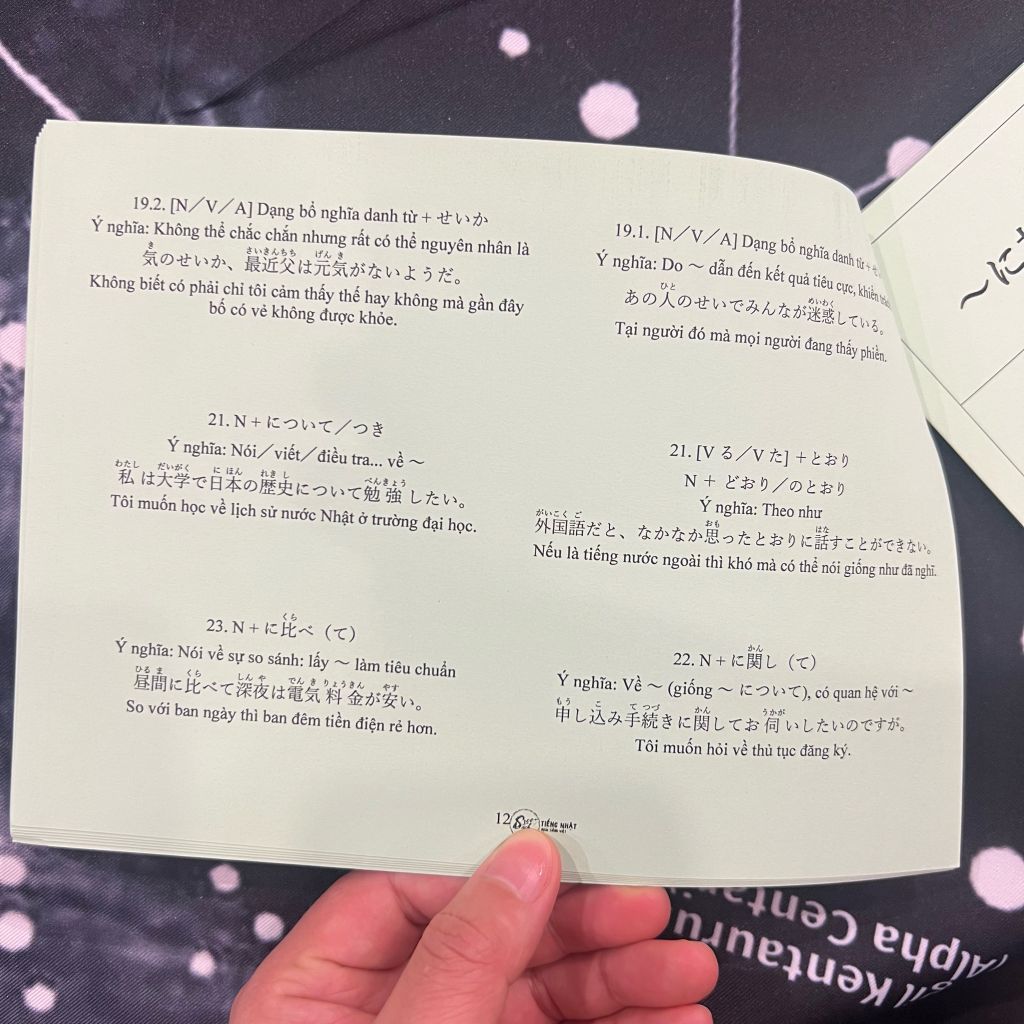 19.2. [N／V／A] Dạng bổ nghĩa danh từ + せいか
Ý nghĩa: Không thể chắc chắn nhưng rất có thể nguyên nhân là
気のせいか、最近父は元気がないようだ。
Không biết có phải chỉ tôi cảm thấy thế hay không mà gần đây
bố có vẻ không được khỏe.
21. N + について／つき
Ý nghĩa: Nói／viết／điều tra... về ～
私は大学で日本の歴史について勉強したい。
Tôi muốn học về lịch sử nước Nhật ở trường đại học.
23. N + に比べ（て）
Ý nghĩa: Nói về sự so sánh: lấy ～ làm tiêu chuẩn
昼間に比べて深夜は電気料金が安い。
So với ban ngày thì ban đêm tiền điện rẻ hơn.
19.1. [N／V／A] Dạng bổ nghĩa danh từ +
Ý nghĩa: Do ～ dẫn đến kết quả tiêu cực, khiến
あの人のせいでみんなが迷惑している。
Tại người đó mà mọi người đang thấy phiền.
21. [V る／V た] +とおり
N + どおり／のとおり
Ý nghĩa: Theo như
外国語だと、なかなか思ったとおりに話すことができない。
Nếu là tiếng nước ngoài thì khó mà có thể nói giống như đã nghĩ.
22. N + に関し（て）
Ý nghĩa: Về ～ (giống ～ について), có quan hệ với ～
申し込み手続きに関してお伺いしたいのですが。
Tôi muốn hỏi về thủ tục đăng ký.
12
TIẾNG NHẬT
～に
Kentauru
Alpha Centa